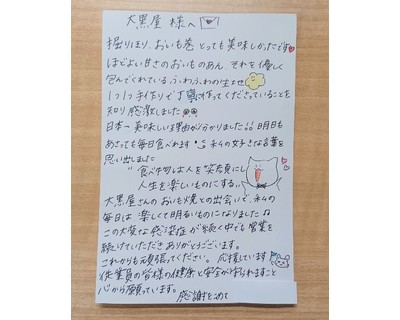 大黒屋様へ
掘りほり、おいも巻 とっても美味しかったです
ほどよい甘さのおいものあん、それを優しく
包んでくれている、ふわふわの生地
1つ1つ手作りで丁寧に作ってくださっていることを
知り感激しました
日本一美味しい理由が分かりました。明日も
あさっても毎日食べれます 私の好きな言葉を
思い出しました
"食べ物は人を笑顔にし
人生を楽しいものにする"
大黒屋さんのおいも焼との出会いで、私の
毎日は 楽しくて明るいものになりました♪
この大変な感染症が続く中でも営業を
続けていただきありがとうございます。
これからも頑張ってください。応援しています
従業員の皆様の健康と安全が守られますこと
心から願っています。
感謝をこめて